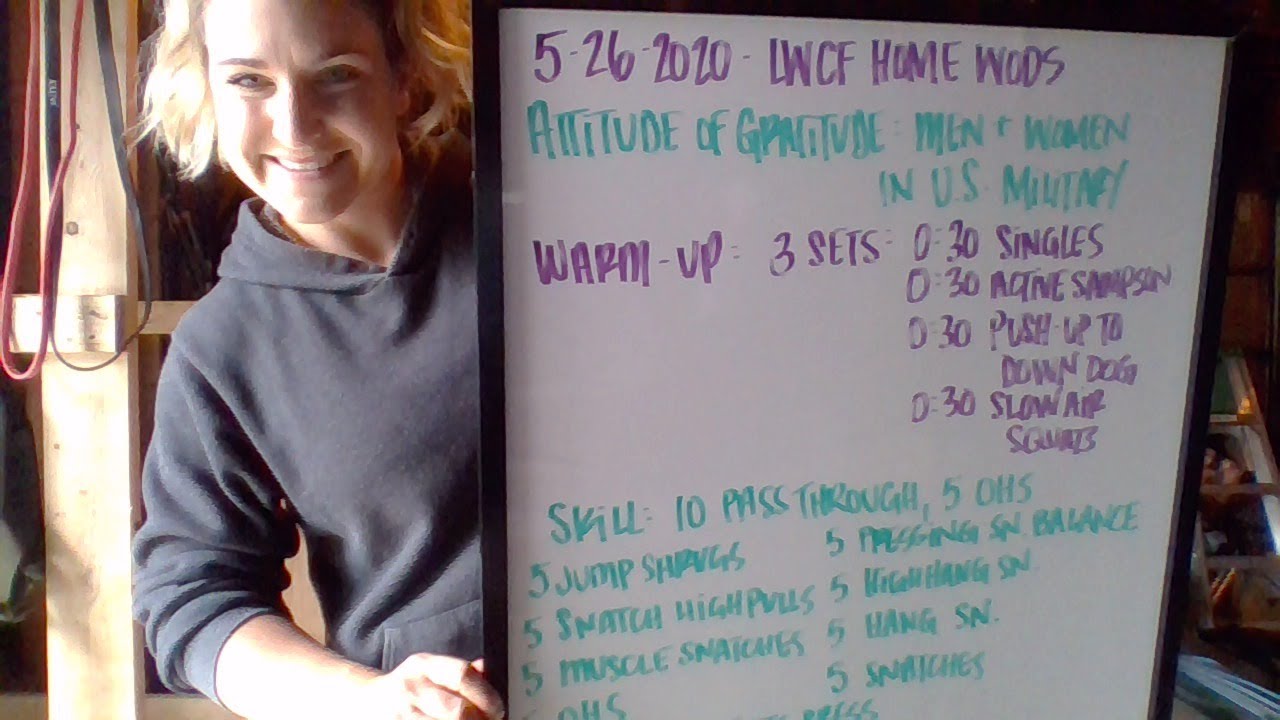 5-26-2020 - LWCF HOME WODS
ATTITUDE OF GRATITUDE: MEN + WOMEN
IN U.S. MILITARY
WARM-UP: 3 SETS: 0:30 SINGLES
0:30 ACTIVE SAMPSON
0:30 PUSH-UP TO
DOWN DOG
0:30 SLOW AIR
SQUATS
SKILL: 10 PASS THROUGH, 5 OHS
5 JUMP SHRUGS 5 PRESSING SN. BALANCE
5 SNATCH HIGH PULLS 5 HIGH HANG SN.
5 MUSCLE SNATCHES 5 HANG SN.
5 OHS 5 SNATCHES
PRESS